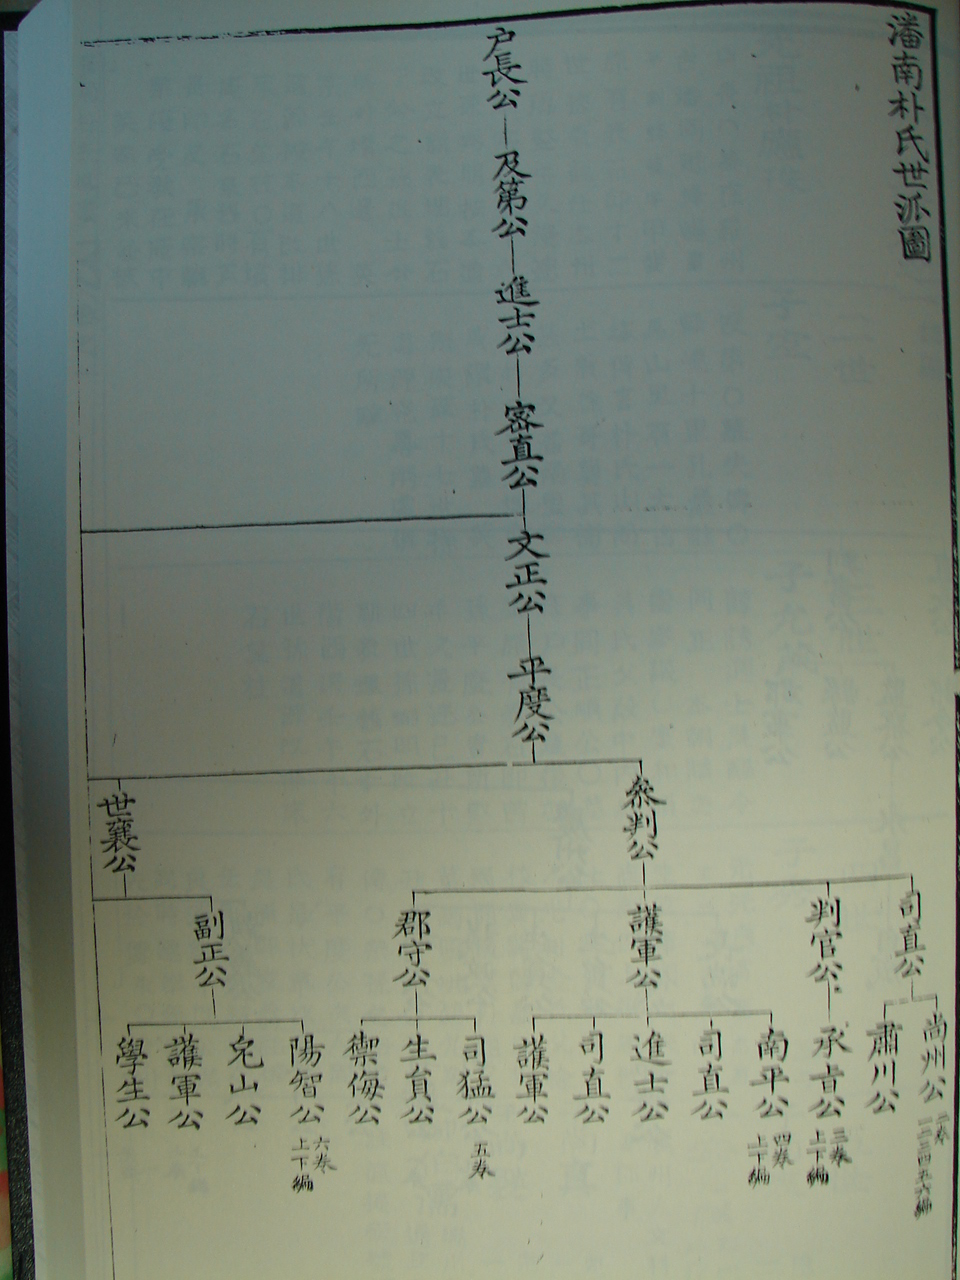 潘南朴氏世派圖
戶長公
及第公
進士公
密直公
文正公
平度公
叅判公
世襄公
司直公
判官公
護軍公
郡守公
副正公
尚州公
二卷
一二三四五六編
肅川公
承旨公
三卷
上下編
南平公
四卷
上下編
司直公
進士公
司直公
護軍公
司猛公
五卷
生員公
禦侮公
陽智公
六卷
上下編
兔山公
護軍公
學生公